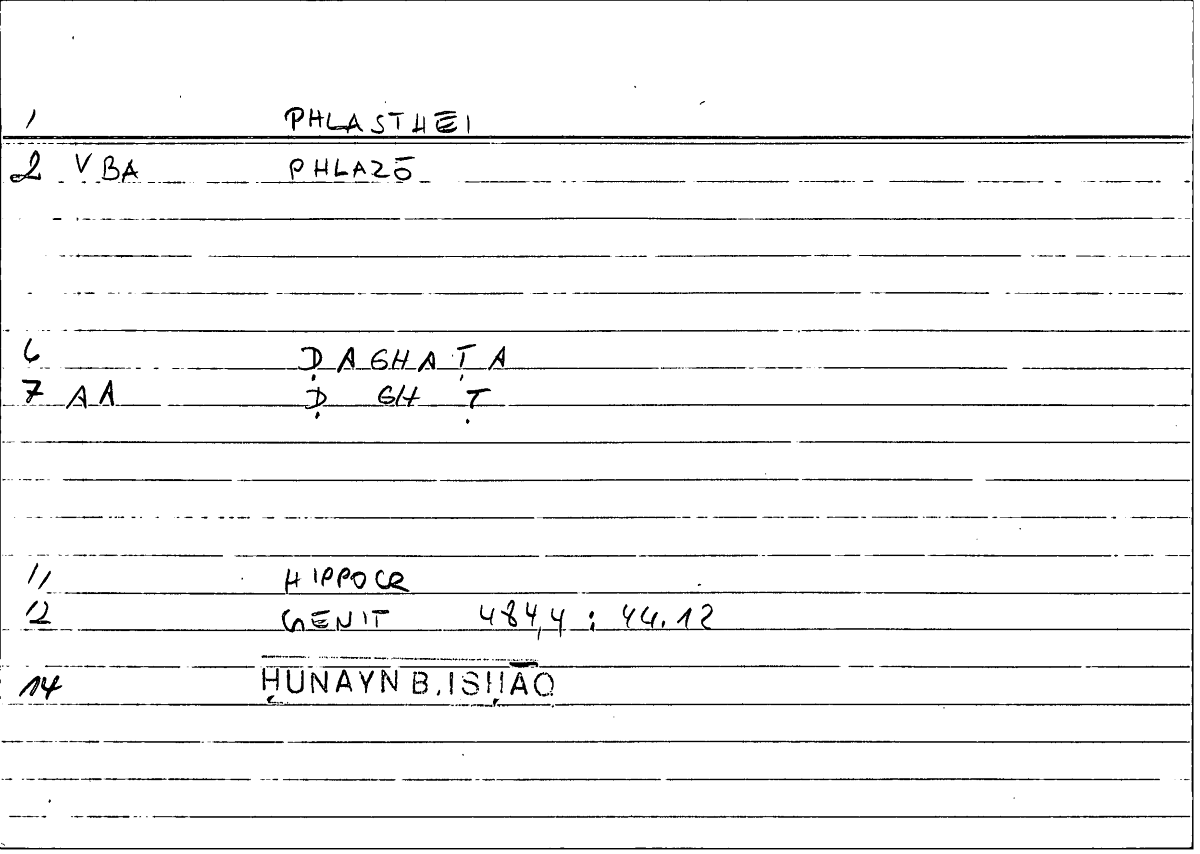 1 PHLASTHĒI
2 VBA PHLAZŌ
6 ḌAGHAṬA
7 AA Ḍ GH Ṭ
11 HIPPOCR
12 GENIT 484,4 : 44.12
14 ḤUNAYN B. ISḤĀQ